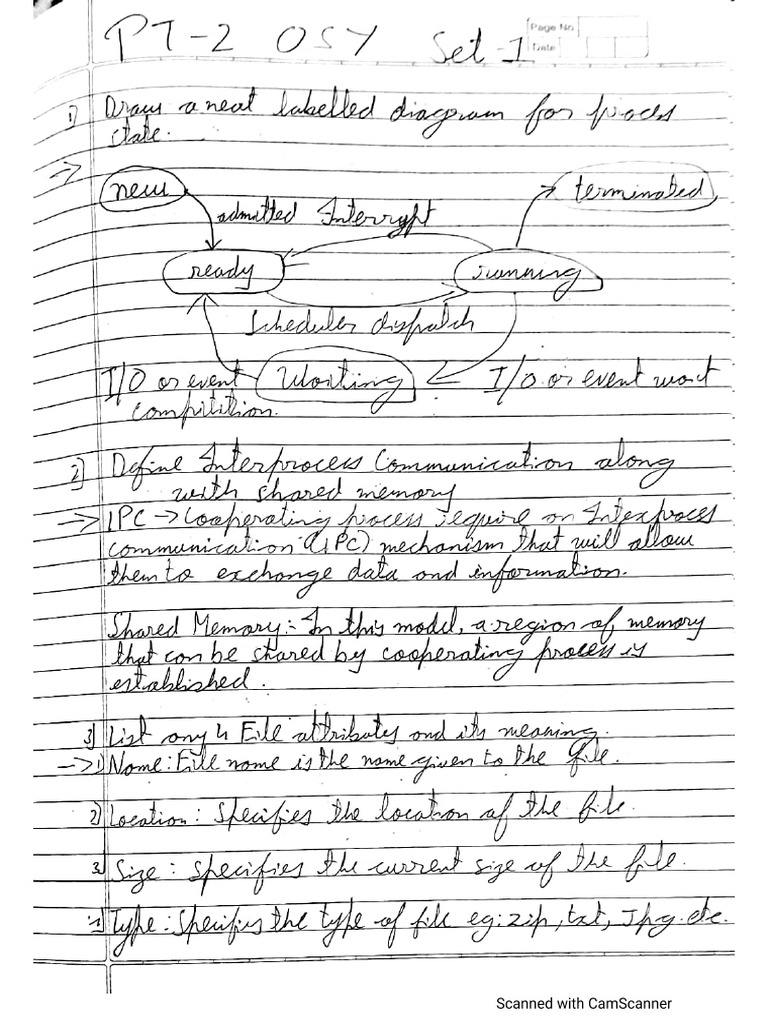 PT-2 OSY Set-1
Page No
Date
1) Draw a neat labelled diagram for process
state.
new
terminated
admitted Interrupt
ready
running
Scheduler dispatch
I/O or event
Waiting
I/O or event wait
compitition.
2) Define Interprocess Communication along
with shared memory
→ IPC → Cooperating process require an Interprocess
communication (IPC) mechanism that will allow
them to exchange data and information.
Shared Memory:- In this model, a region of memory
that can be shared by cooperating process is
established.
3) List any 4 File attributes and its meaning.
→ 1) Name: File name is the name given to the file.
2) Location: Specifies the location of the file.
3) Size: specifies the current size of the file.
4) Type: Specifies the type of file eg: zip, txt, Jpg. etc.
Scanned with CamScanner